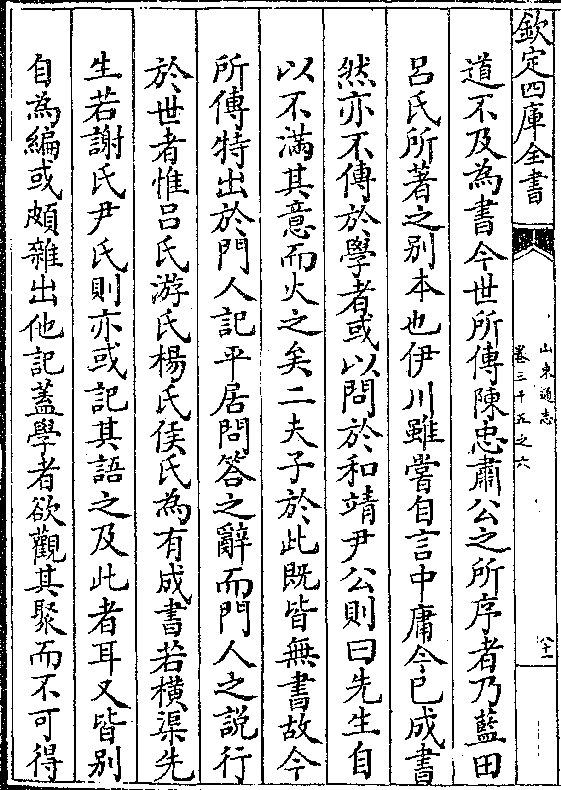 欽定四庫全書
山東通志
卷三十五之六
八十一
道不及為書今世所傳陳忠肅公之所序者乃藍田
呂氏所著之别本也伊川雖嘗自言中庸今已成書
然亦不傳於學者或以問於和靖尹公則曰先生自
以不滿其意而火之矣二夫子於此既皆無書故今
所傳特出於門人記平居問答之辭而門人之説行
於世者惟呂氏游氏楊氏侯氏為有成書若橫渠先
生若謝氏尹氏則亦或記其語之及此者耳又皆别
自為編或頗雜出他記蓋學者欲觀其聚而不可得